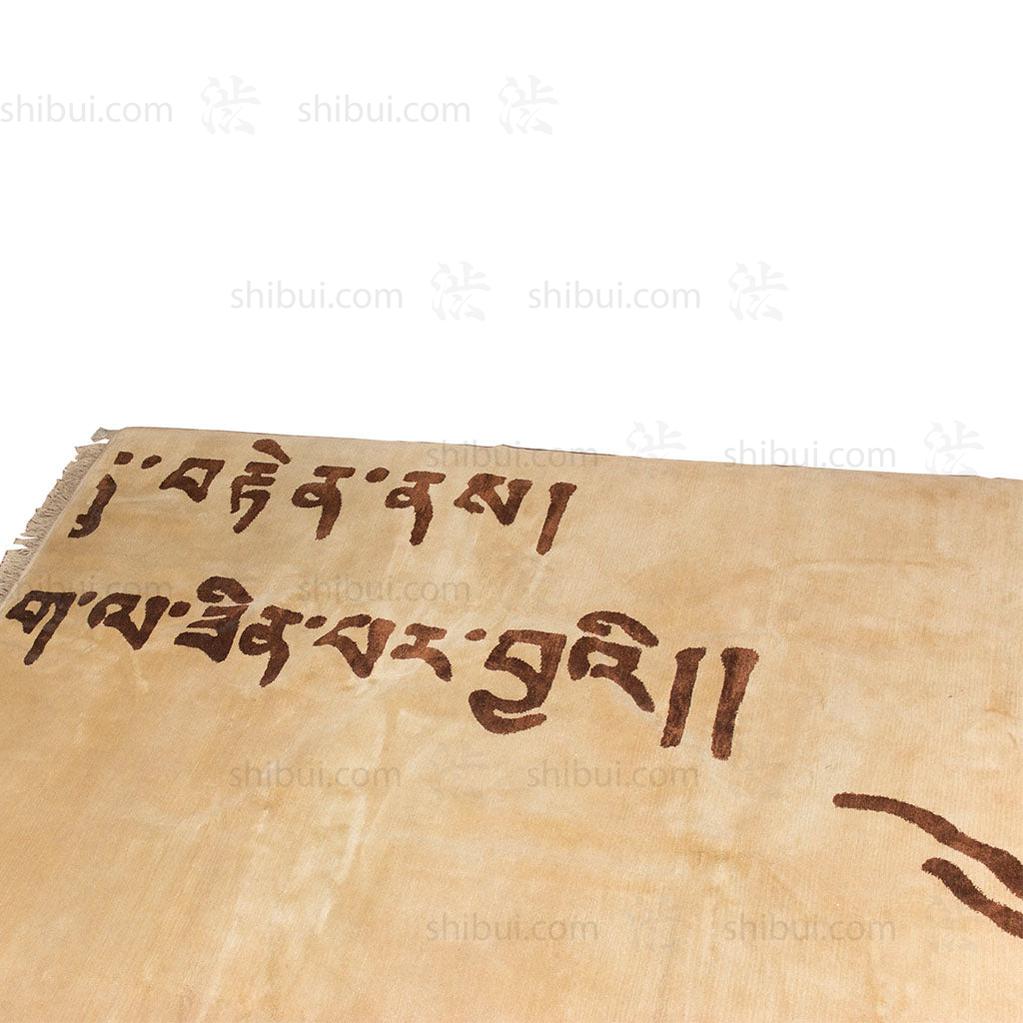 shibui.com 渋 shibui.com 渋
shibui.com 渋 shibui.com 渋
shibui.com 渋 shibui.com 渋
བརྟེན་ནས།
shibui.com shibui.com
ག་ལ་ པར་བྱའི།།
shibui.com shibui.com
shibui.com shibui.com